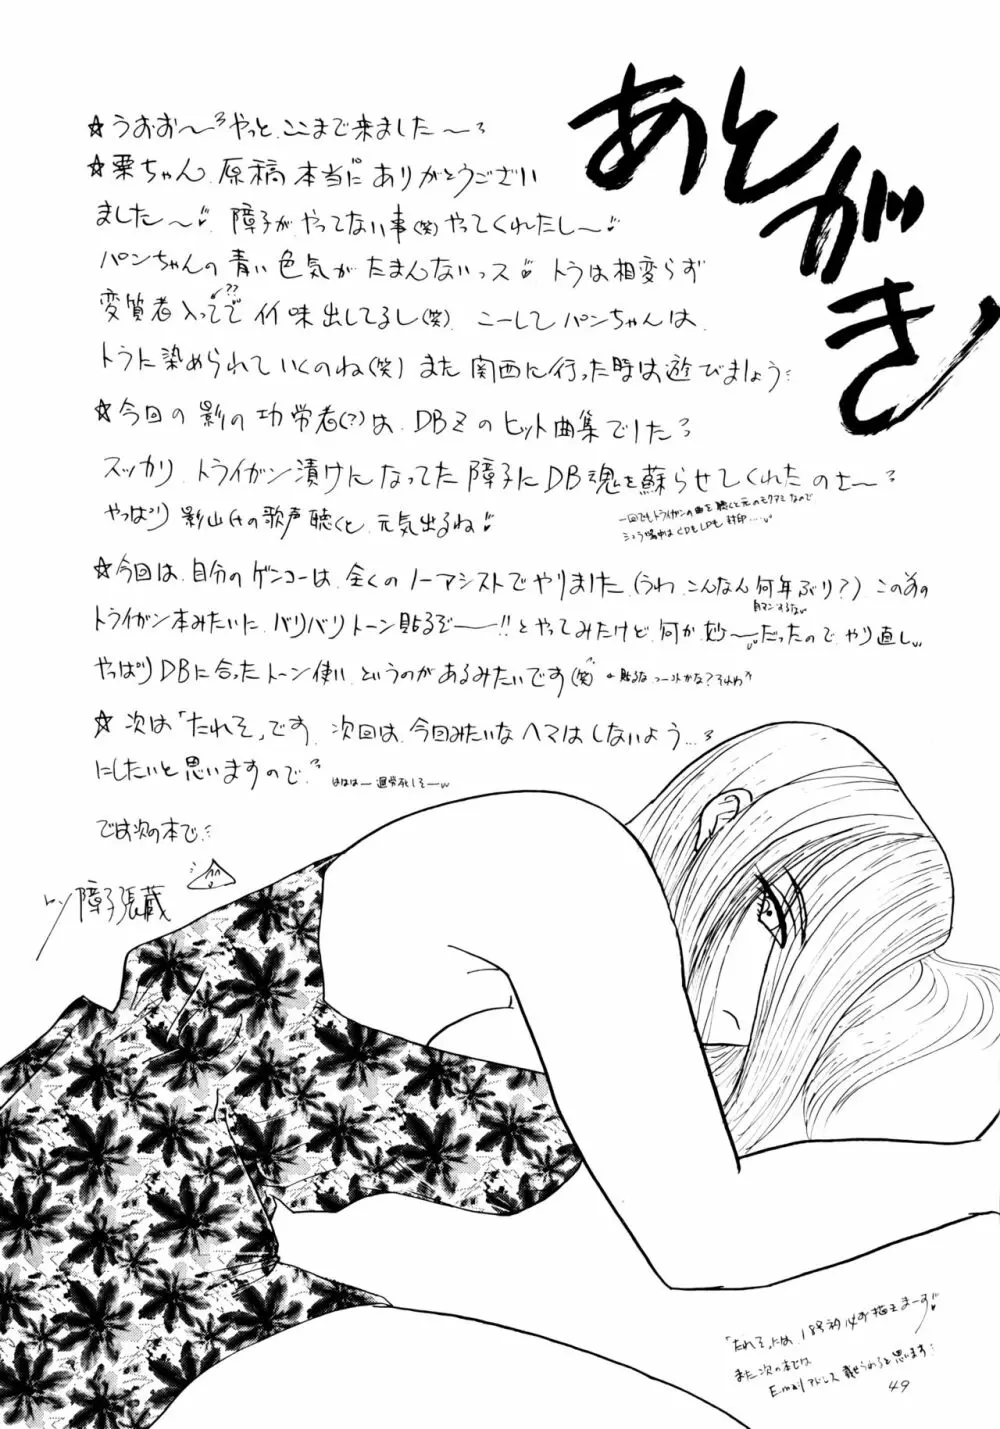 あとがき
☆うおお〜やっと、ここまで来ました〜
☆栗ちゃん、原稿本当にありがとうござい
ました〜 障子がやってない事(笑)やってくれたし〜
パンちゃんの青い色気がたまんないっス トラは相変らず
変質者入ってて イイ味出してるし(笑) こーしてパンちゃんは、
??
トラに染められていくのね(笑) また関西に行った時は遊びましょう
☆今回の影の功労者(?)は、DBZのヒット曲集でした
スッカリ、トライガン漬けになってた障子にDB魂を蘇らせてくれたのさ〜
やっぱり影山さんの歌声聴くと、元気出るね
一回でもトライガンの曲を聴くと元のモクアミなので
CDもLPも封印....
☆今回は、自分のゲンコーは、全くのノーアシストでやりました、(うわ、こんなん何年ぶり?) この前の
自マンするない
トライガン本みたいに、バリバリトーン貼るぞ——!!とやってみたけど、何か妙〜だったので、やり直し
やっぱりDBに合ったトーン使い、というのがあるみたいです(笑)
☆次は「たれそ」です、次回は、今回みたいなヘマはしないよう...
にしたいと思いますので、
では次の本で
障子張蔵
「たれそ」には、18号
また次の本では
Emailアドレス 載せられると思います
49